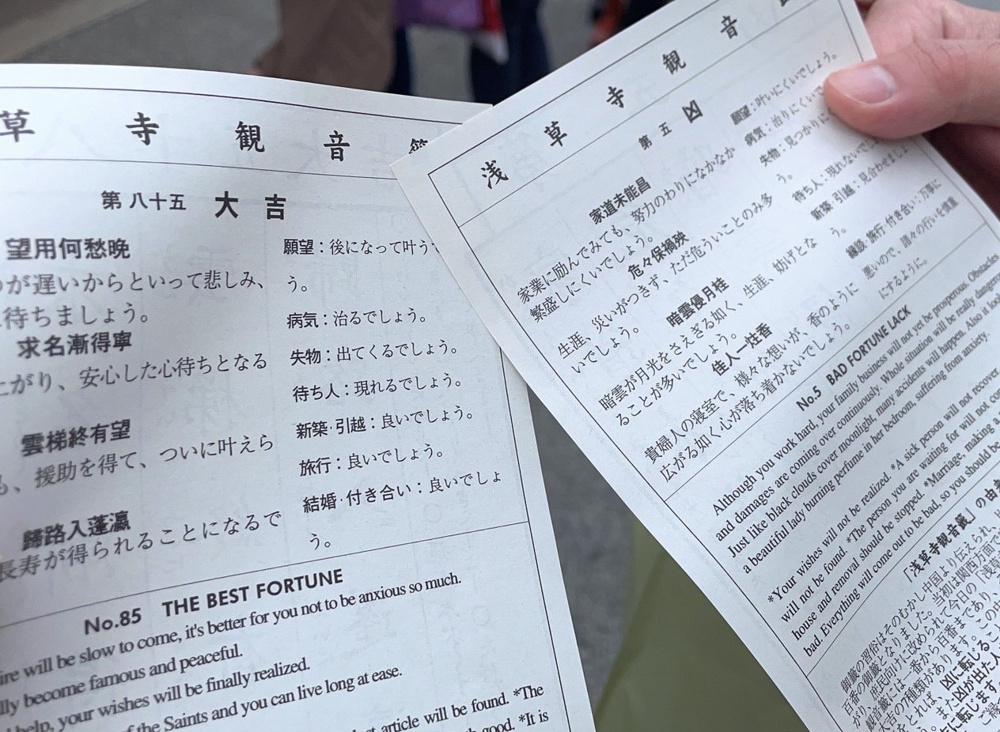 草 寺 観 音
第八十五 大吉
望用何愁晩
が遅いからといって悲しみ、
待ちましょう。
求名漸得寧
がり、安心した心待ちとなる
雲梯終有望
も、援助を得て、ついに叶えら
歸路入蓬瀛
長寿が得られることになるで
願望：後になって叶う
う。
病気：治るでしょう。
失物：出てくるでしょう。
待ち人：現れるでしょう。
新築·引越：良いでしょう。
旅行：良いでしょう。
結婚·付き合い：良いでしょ
う。
No.85 THE BEST FORTUNE
will be slow to come, it's better for you not to be anxious so much.
become famous and peaceful.
help, your wishes will be finally realized.
of the Saints and you can live long at ease.
article will be found. *The
good. *It is
浅 草 寺 観 音
第五 凶
家道未能昌
家業に励んでみても、努力のわりになかなか
繁盛しにくいでしょう。
危々保禍殃
生涯、災いがつきず、ただ危ういことのみ多
いでしょう。
暗雲侵月桂
暗雲が月光をさえぎる如く、生涯、妨げとな
ることが多いでしょう。
佳人一炷香
貴婦人の寝室で、様々な想いが、香のように
広がる如く心が落ち着かないでしょう。
願望：叶いにくいでしょう。
病気：治りにくいで
失物：見つかりに
う。
待ち人：現れないで
新築·引越：見合わ
う。
縁談·旅行·付き合い：万事に
悪いので、諸々の行いを慎重
にするように。
No.5 BAD FORTUNE LACK
Although you work hard, your family business will not yet be prosperous. Obstacles
and damages are coming over continuously. Whole situation will be really dangerous.
Just like black clouds cover moonlight, many accidents will happen. Also it looks
a beautiful lady burning perfume in her bedroom, suffering from anxiety.
*Your wishes will not be realized. *A sick person will not recover
will not be found. *The person you are waiting for will not co
house and removal should be stopped. *Marriage, making
bad. Everything will come out to be bad, so you should be
「浅草寺観音籤」の由
御籤の習俗はそのむかし中国より伝えられ、